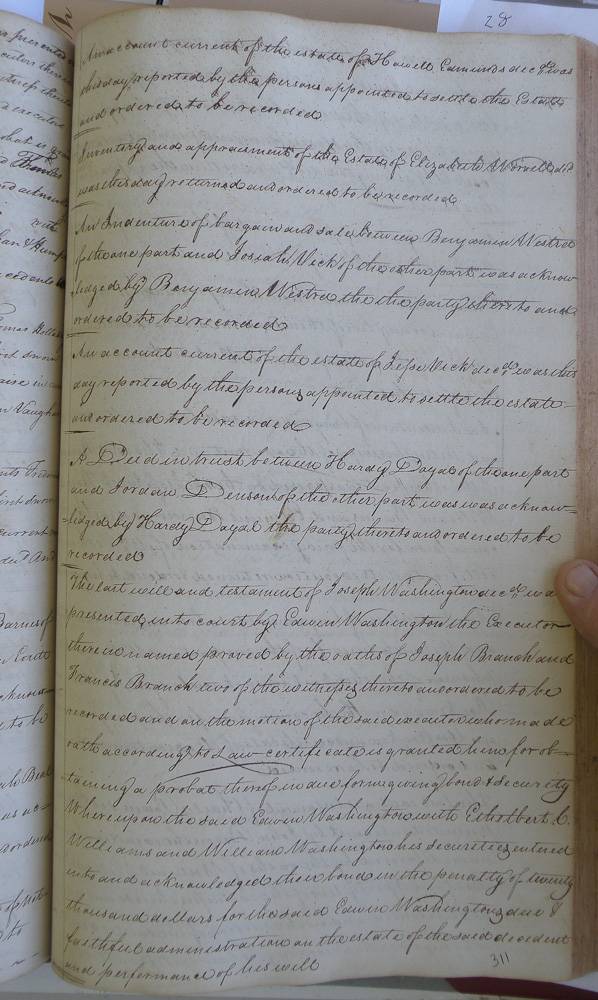 28
An account current of the estate of Howell Edmunds decd was
this day reported by the persons appointed to settle the Estate
and ordered to be recorded
Inventory and appraisment of the Estate of Elizabeth Worrell decd
was this day returned and ordered to be recorded
An Indenture of bargain and sale between Benjamin Westra
of the one part and Josiah Vick of the other part was acknow
ledged by Benjamin Westra the the party thereto and
ordered to be recorded
An account current of the estate of Jesse Vick decd was this
day reported by the persons appointed to settle the estate
and ordered to be recorded
A Deed in trust between Hardy Doyal of the one part
and Jordan Denson of the other part was was acknow=
=ledged by Hardy Doyal the party thereto and ordered to be
recorded
The last will and testament of Joseph Washington decd was
presented into court by Edwin Washington the Executor
therein named proved by the oaths of Joseph Branch and
Francis Branch two of the witnesses thereto and ordered to be
recorded and on the motion of the said executor who made
oath according to Law certificate is granted him for ob=
taining a probat thereof in due form giving bond & security
Whereupon the said Edwin Washington with Ethelbert C.
Williams and William Washington his securities entered
into and acknowledged their bond in the penalty of twenty
thousand dollars for the said Edwin Washingtons due &
faithful administration on the estate of the said decedent
and performance of his will
311